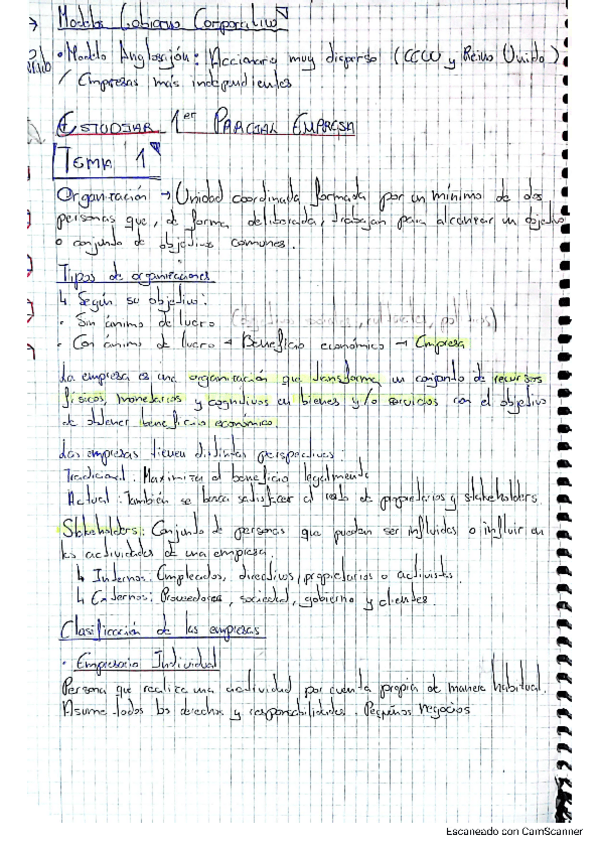 → Modelos Gobierno Corporativo
• Modelo Anglosajón: Accionario muy disperso (EEUU y Reino Unido)
/ Empresas más independientes
ESTUDIAR 1er PARCIAL EMPRESA
TEMA 1
Organización → Unidad coordinada formada por un mínimo de dos
personas que, de forma deliberada, trabajan para alcanzar un objetivo
o conjunto de objetivos comunes.
Tipos de organizaciones
↳ Según su objetivo:
• Sin ánimo de lucro
• Con ánimo de lucro → Beneficio económico → Empresa
La empresa es una organización que transforma un conjunto de recursos
físicos, monetarios y cognitivos en bienes y/o servicios con el objetivo
de obtener beneficio económico.
Las empresas tienen distintas perspectivas:
Tradicional: Maximizar el beneficio legalmente
Actual: También se busca satisfacer el resto de propietarios y stakeholders.
Stakeholders: Conjunto de personas que puedan ser influidas o influir en
las actividades de una empresa.
↳ Internos: Empleados, directivos, propietarios o activistas
↳ Externos: Proveedores, sociedad, gobierno y clientes.
Clasificación de las empresas
• Empresario Individual
Persona que realiza una actividad por cuenta propia de manera habitual.
Asume todos los derechos y responsabilidades. Pequeños negocios
Escaneado con CamScanner